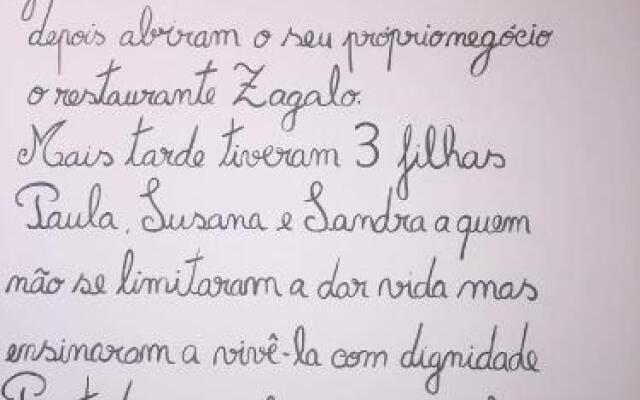 depois abriram o seu próprio negócio
o restaurante Zagalo.
Mais tarde tiveram 3 filhas
Paula, Susana e Sandra a quem
não se limitaram a dar vida mas
ensinaram a vivê-la com dignidade